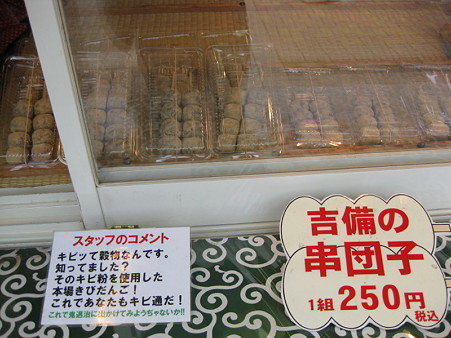 スタッフのコメント
キビッて穀物なんです。
知ってました？
そのキビ粉を使用した
本場きびだんご！
これであなたもキビ通だ！
これで鬼退治に出かけてみようぢゃないか!!
吉備の
串団子
1組250円
税込